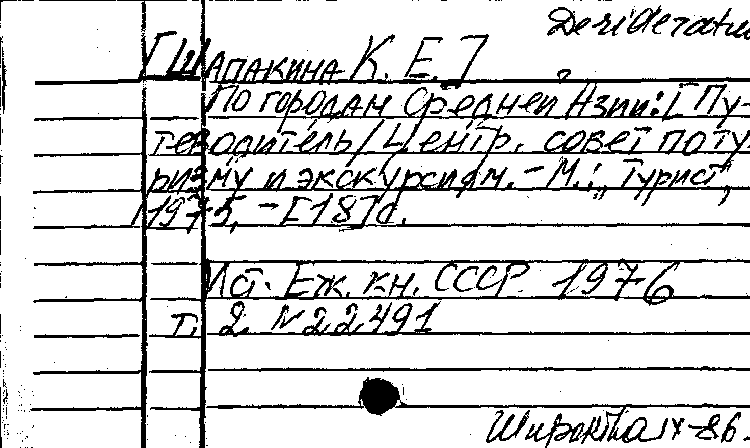 Desiderata
[Шапакина К. Е.]
По городам Средней Азии: [Пу-
теводитель / Центр. совет по ту-
ризму и экскурсиям. - М.: „Турист",
1975, - [18] с.
Ист. Еж. кн. СССР 1976
т. 2 N 22491
IX-86.